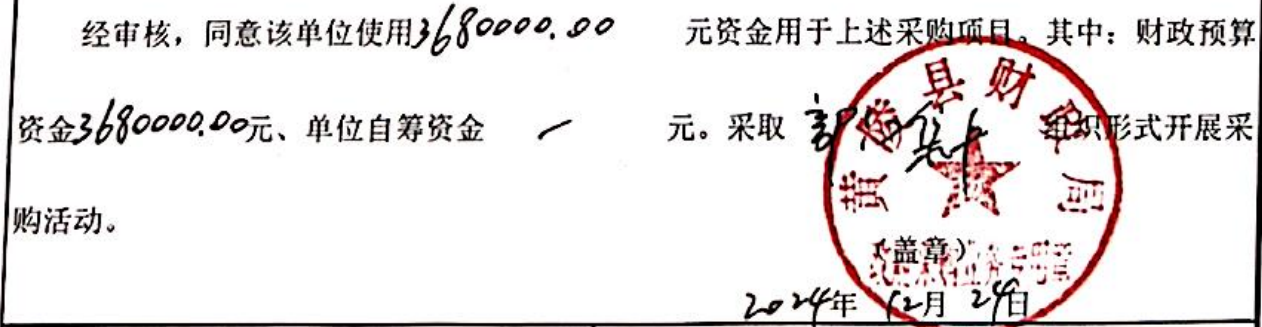 经审核，同意该单位使用3680000.00 元资金用于上述采购项目。其中：财政预算
资金3680000.00元、单位自筹资金 — 元。采取 部门集中 组织形式开展采
购活动。
（盖章）
2024年 12月 24日
县财政局